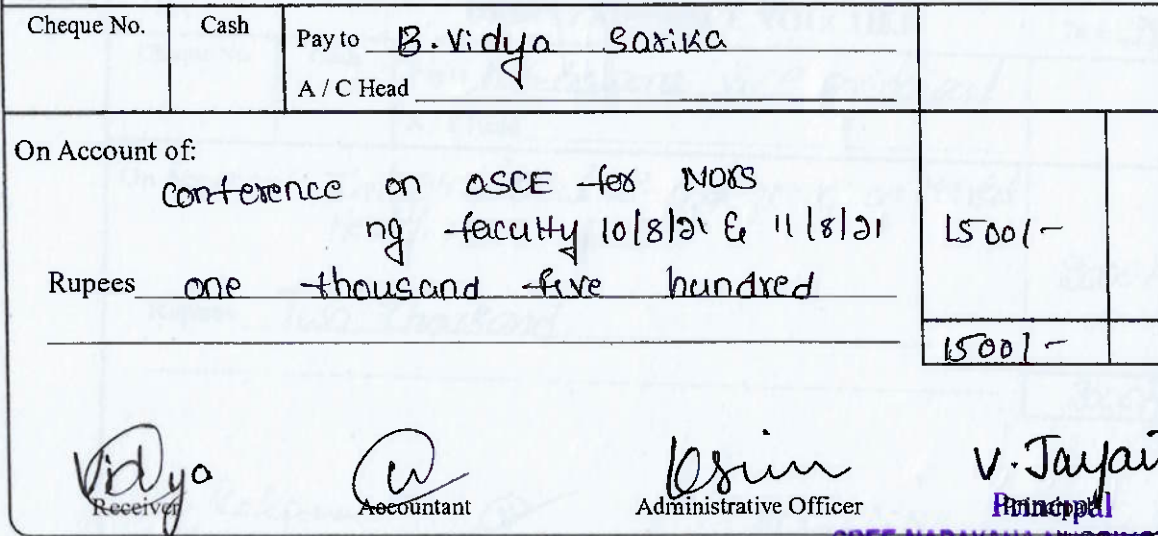 Cheque No. Cash Pay to B. Vidya Sarika
A / C Head
On Account of:
conference on OSCE for Nors
ng faculty 10/8/21 & 11/8/21 1500/-
Rupees one thousand five hundred
1500/-
Vidya V. Jayai
Receiver Accountant Administrative Officer Principal
Principal
SREE NARAYANA NURSING